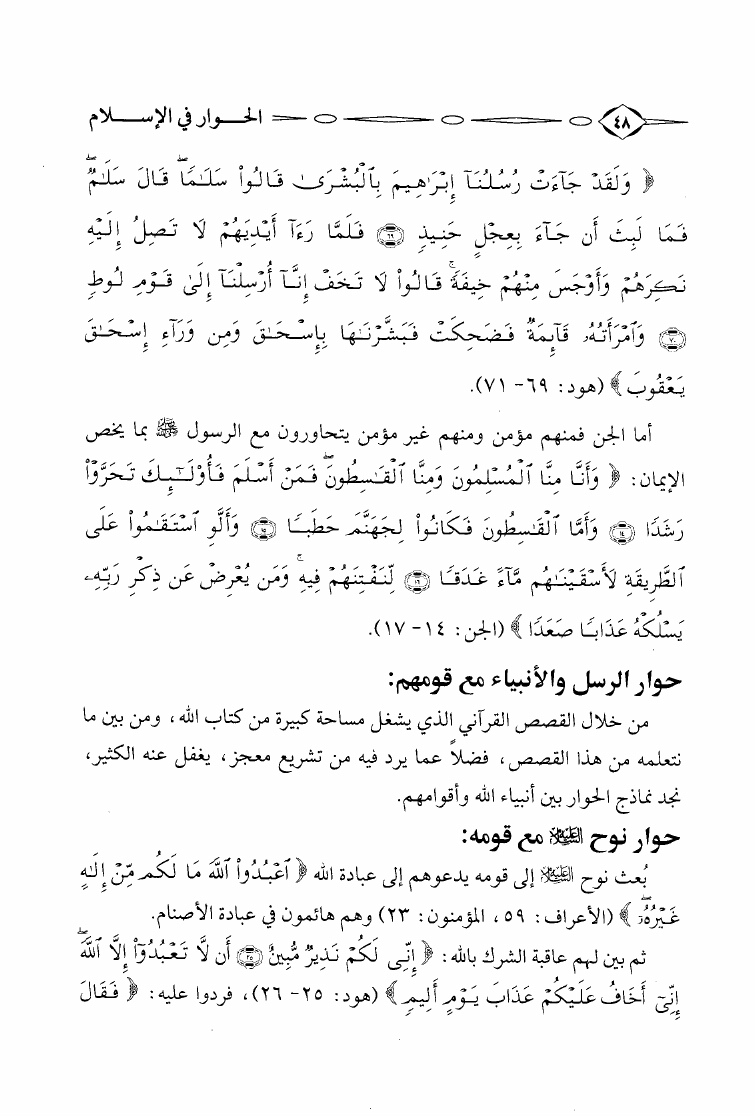 ٤٨ الحـــوار في الإســـــلام
﴿ وَلَقَدْ جَآءَتْ رُسُلُنَآ إِبْرَٰهِيمَ بِٱلْبُشْرَىٰ قَالُوا۟ سَلَـٰمًا ۖ قَالَ سَلَـٰمٌ ۖ
فَمَا لَبِثَ أَن جَآءَ بِعِجْلٍ حَنِيذٍ ۝٦٩ فَلَمَّا رَءَآ أَيْدِيَهُمْ لَا تَصِلُ إِلَيْهِ
نَكِرَهُمْ وَأَوْجَسَ مِنْهُمْ خِيفَةً ۚ قَالُوا۟ لَا تَخَفْ إِنَّآ أُرْسِلْنَآ إِلَىٰ قَوْمِ لُوطٍ
۝٧٠ وَٱمْرَأَتُهُۥ قَآئِمَةٌ فَضَحِكَتْ فَبَشَّرْنَـٰهَا بِإِسْحَـٰقَ وَمِن وَرَآءِ إِسْحَـٰقَ
يَعْقُوبَ ﴾ (هود: ٦٩- ٧١).
أما الجن فمنهم مؤمن ومنهم غير مؤمن يتحاورون مع الرسول ﷺ بما يخص
الإيمان: ﴿ وَأَنَّا مِنَّا ٱلْمُسْلِمُونَ وَمِنَّا ٱلْقَـٰسِطُونَ ۖ فَمَنْ أَسْلَمَ فَأُو۟لَـٰٓئِكَ تَحَرَّوْا۟
رَشَدًا ۝١٤ وَأَمَّا ٱلْقَـٰسِطُونَ فَكَانُوا۟ لِجَهَنَّمَ حَطَبًا ۝١٥ وَأَلَّوِ ٱسْتَقَـٰمُوا۟ عَلَى
ٱلطَّرِيقَةِ لَأَسْقَيْنَـٰهُم مَّآءً غَدَقًا ۝١٦ لِّنَفْتِنَهُمْ فِيهِ ۚ وَمَن يُعْرِضْ عَن ذِكْرِ رَبِّهِۦ
يَسْلُكْهُ عَذَابًا صَعَدًا ﴾ (الجن: ١٤- ١٧).
حوار الرسل والأنبياء مع قومهم:
من خلال القصص القرآني الذي يشغل مساحة كبيرة من كتاب الله، ومن بين ما
نتعلمه من هذا القصص، فضلاً عما يرد فيه من تشريع معجز، يغفل عنه الكثير،
نجد نماذج الحوار بين أنبياء الله وأقوامهم.
حوار نوح عليه السلام مع قومه:
بُعث نوح عليه السلام إلى قومه يدعوهم إلى عبادة الله ﴿ ٱعْبُدُوا۟ ٱللَّهَ مَا لَكُم مِّنْ إِلَـٰهٍ
غَيْرُهُۥٓ ۖ ﴾ (الأعراف: ٥٩، المؤمنون: ٢٣) وهم هائمون في عبادة الأصنام.
ثم بين لهم عاقبة الشرك بالله: ﴿ إِنِّى لَكُمْ نَذِيرٌ مُّبِينٌ ۝٢٥ أَن لَّا تَعْبُدُوٓا۟ إِلَّا ٱللَّهَ ۖ
إِنِّىٓ أَخَافُ عَلَيْكُمْ عَذَابَ يَوْمٍ أَلِيمٍ ﴾ (هود: ٢٥- ٢٦)، فردوا عليه: ﴿ فَقَالَ